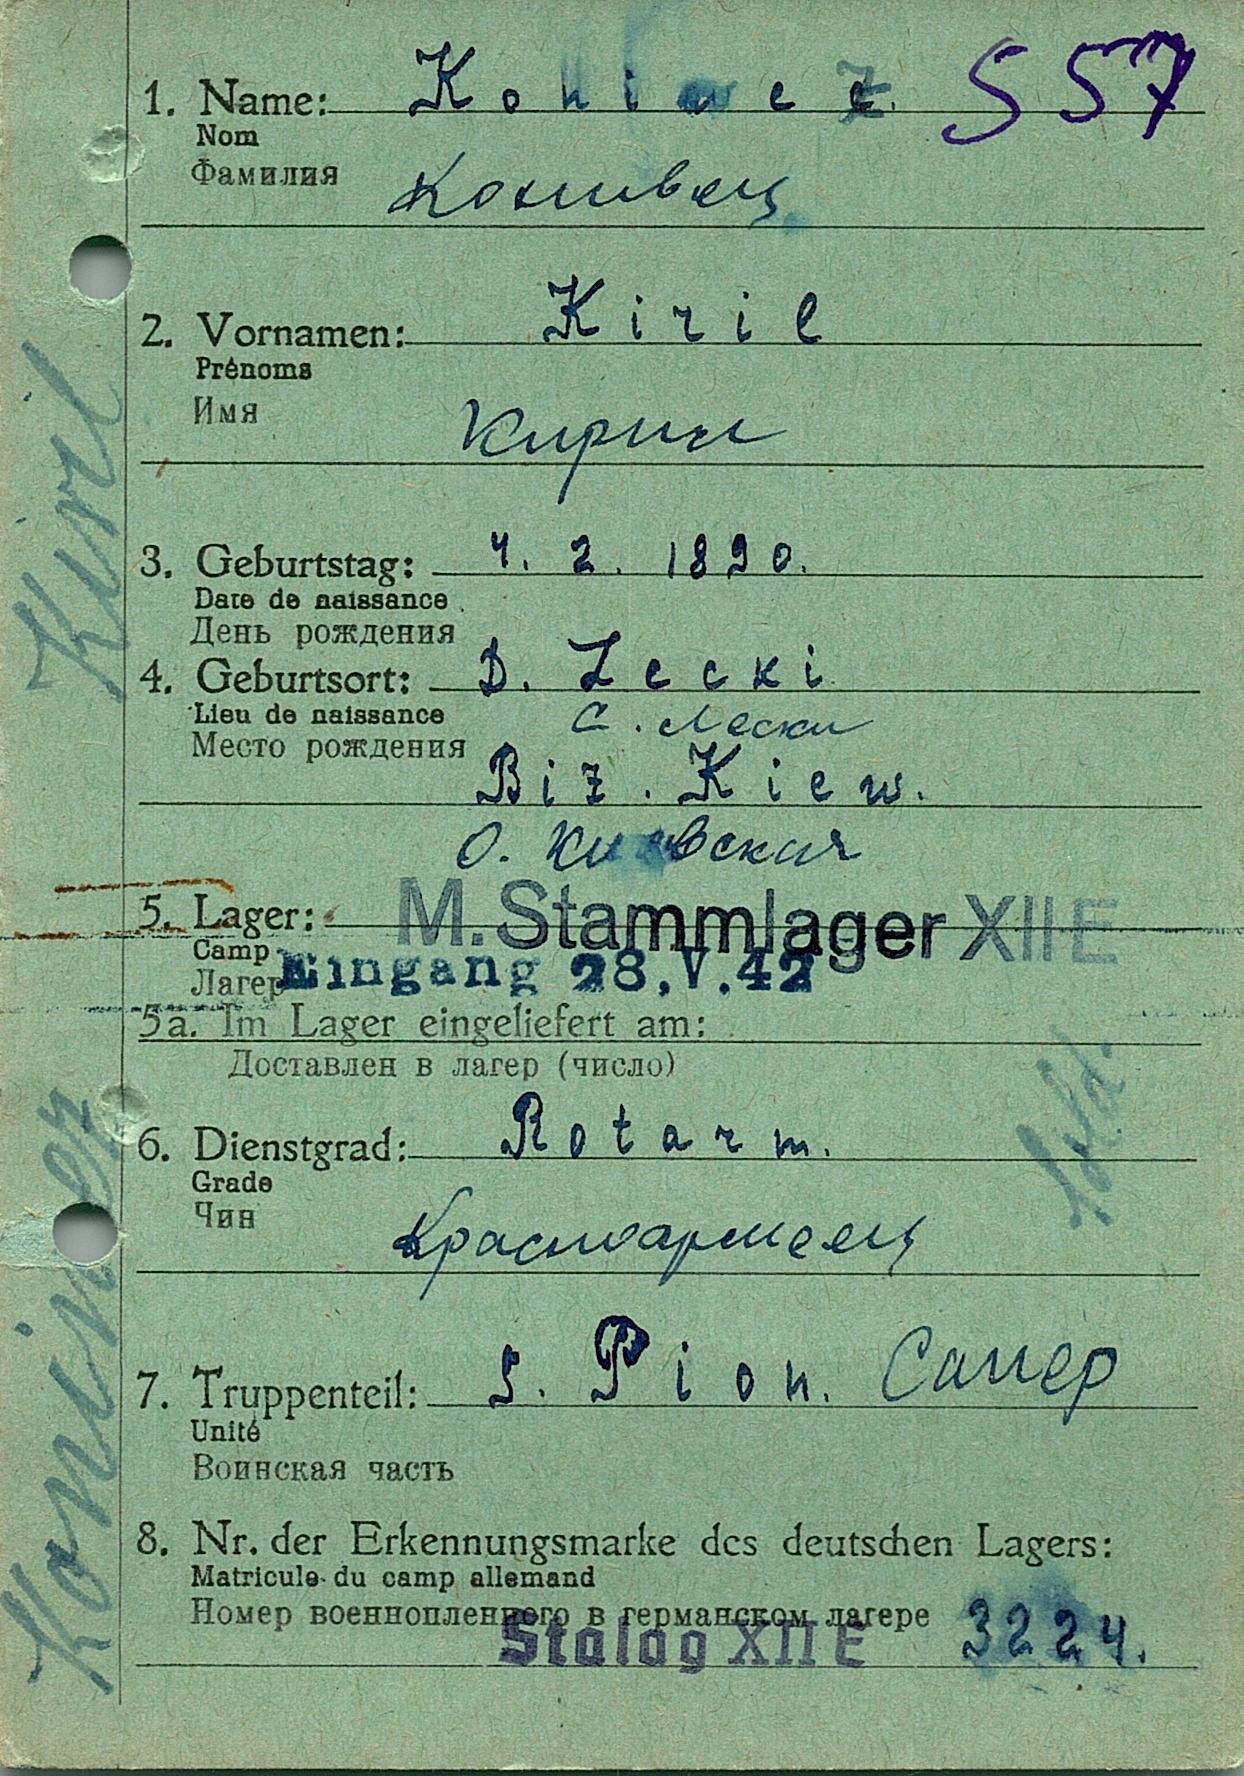 1. Name: Koniwez. 557
Nom
Фамилия Конивец
2. Vornamen: Kiril
Prénoms
Имя Кирил
3. Geburtstag: 4. 2. 1890.
Date de naissance
День рождения
4. Geburtsort: D. Lecki
Lieu de naissance С. Лески
Место рождения
Biz. Kiew.
О. Киевская
5. Lager: M. Stammlager XII E
Camp
Лагер Eingang 28.V.42
5a. Im Lager eingeliefert am:
Доставлен в лагер (число)
6. Dienstgrad: Rotarm.
Grade
Чин Красноармеец
7. Truppenteil: 5. Pion. Сапер
Unité
Воинская часть
8. Nr. der Erkennungsmarke des deutschen Lagers:
Matricule du camp allemand
Номер военнопленного в германском лагере 3224.
Stalag XII E
Koniwez Kiril